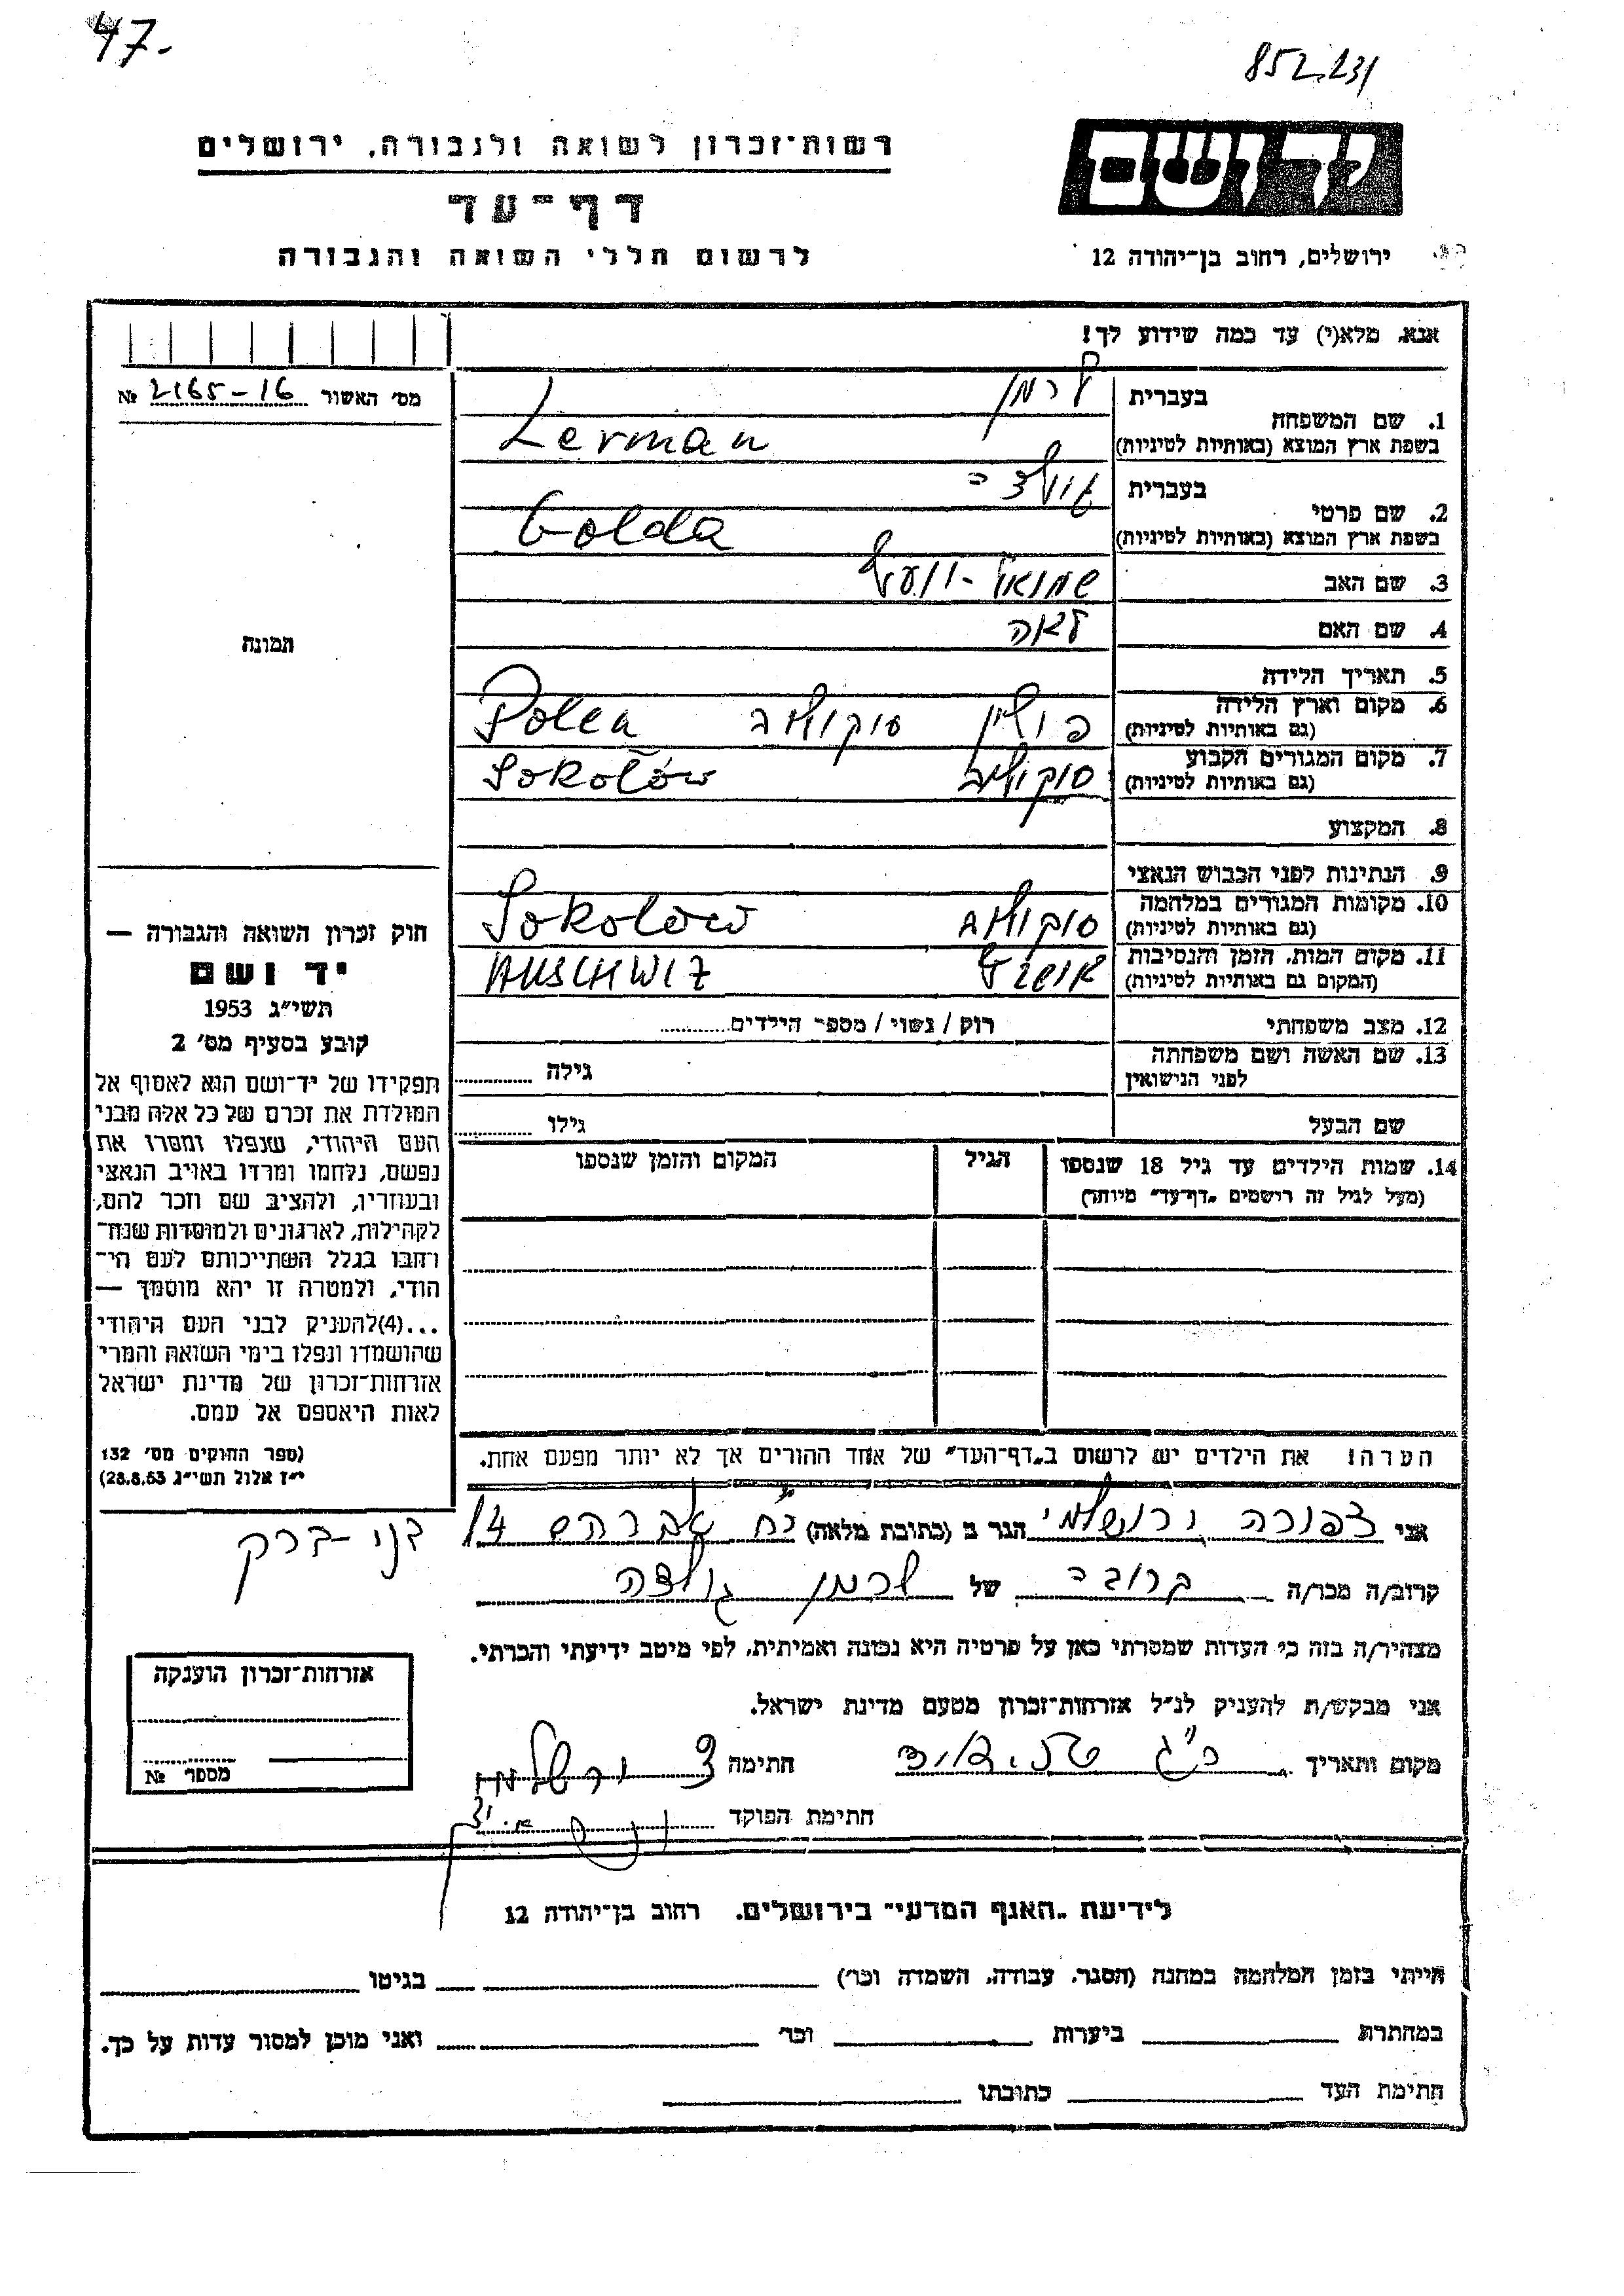 47-
852.231
רשות־זכרון לשואה ולגבורה, ירושלים
יד ושם
דף־עד
לרשום חללי השואה והגבורה
ירושלים, רחוב בן־יהודה 12
אנא, מלא(י) עד כמה שידוע לך!
מס׳ האשור 2165-16 №
1. שם המשפחה בעברית לרמן
בשפת ארץ המוצא (באותיות לטיניות) Lerman
2. שם פרטי בעברית גולדה
בשפת ארץ המוצא (באותיות לטיניות) Golda
3. שם האב שמואל -
4. שם האם לאה
תמונה
5. תאריך הלידה
6. מקום וארץ הלידה (גם באותיות לטיניות) פולין סוקולוב Polen
7. מקום המגורים הקבוע (גם באותיות לטיניות) סוקולוב Sokołów
8. המקצוע
9. הנתינות לפני הכבוש הנאצי
10. מקומות המגורים במלחמה (גם באותיות לטיניות) סוקולוב Sokolow
11. מקום המות, הזמן והנסיבות (המקום גם באותיות לטיניות) AUSCHWIZ
12. מצב משפחתי רוק / נשוי / מספר הילדים
13. שם האשה ושם משפחתה לפני הנישואין גילה
שם הבעל גילו
14. שמות הילדים עד גיל 18 שנספו (מעל לגיל זה רושמים „דף־עד״ מיוחד) הגיל המקום והזמן שנספו
חוק זכרון השואה והגבורה —
יד ושם
תשי״ג 1953
קובע בסעיף מס׳ 2
תפקידו של יד־ושם הוא לאסוף אל
המולדת את זכרם של כל אלה מבני
העם היהודי, שנפלו ומסרו את
נפשם, נלחמו ומרדו באויב הנאצי
ובעוזריו, ולהציב שם וזכר להם,
לקהילות, לארגונים ולמוסדות שנח־
רבו בגלל השתייכותם לעם הי־
הודי, ולמטרה זו יהא מוסמך —
...(4) להעניק לבני העם היהודי
שהושמדו ונפלו בימי השואה והמרי
אזרחות־זכרון של מדינת ישראל
לאות היאספם אל עמם.
(ספר החוקים מס׳ 132
י״ז אלול תשי״ג 28.8.53)
הערה! את הילדים יש לרשום ב„דף־העד״ של אחד ההורים אך לא יותר מפעם אחת.
אני צפורה ירושלמי הגר ב (כתובת מלאה) אברהם 14 בני-ברק
קרוב/ה מכר/ה קרובה של לרמן גולדה
מצהיר/ה בזה כי העדות שמסרתי כאן על פרטיה היא נכונה ואמיתית, לפי מיטב ידיעתי והכרתי.
אני מבקש/ת להעניק לנ״ל אזרחות־זכרון מטעם מדינת ישראל.
מקום ותאריך חתימה צ ירושלמי
חתימת הפוקד
אזרחות־זכרון הוענקה
מספר №
לידיעת „האגף המדעי״ בירושלים, רחוב בן־יהודה 12
הייתי בזמן המלחמה במחנה (הסגר, עבודה, השמדה וכו׳) בגיטו
במחתרת ביערות וכו׳ ואני מוכן למסור עדות על כך.
חתימת העד כתובתו